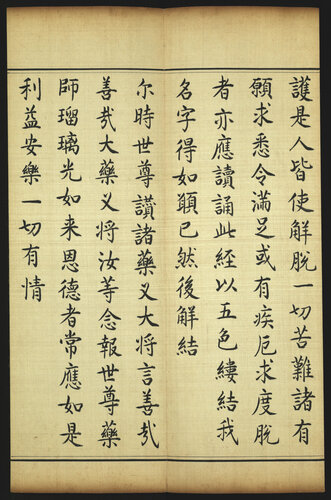 護是人皆使解脫一切苦難諸有
願求悉令滿足或有疾厄求度脫
者亦應讀誦此經以五色縷結我
名字得如願已然後解結
尒時世尊讃諸藥叉大將言善哉
善哉大藥叉將汝等念報世尊藥
師瑠璃光如来恩德者常應如是
利益安樂一切有情